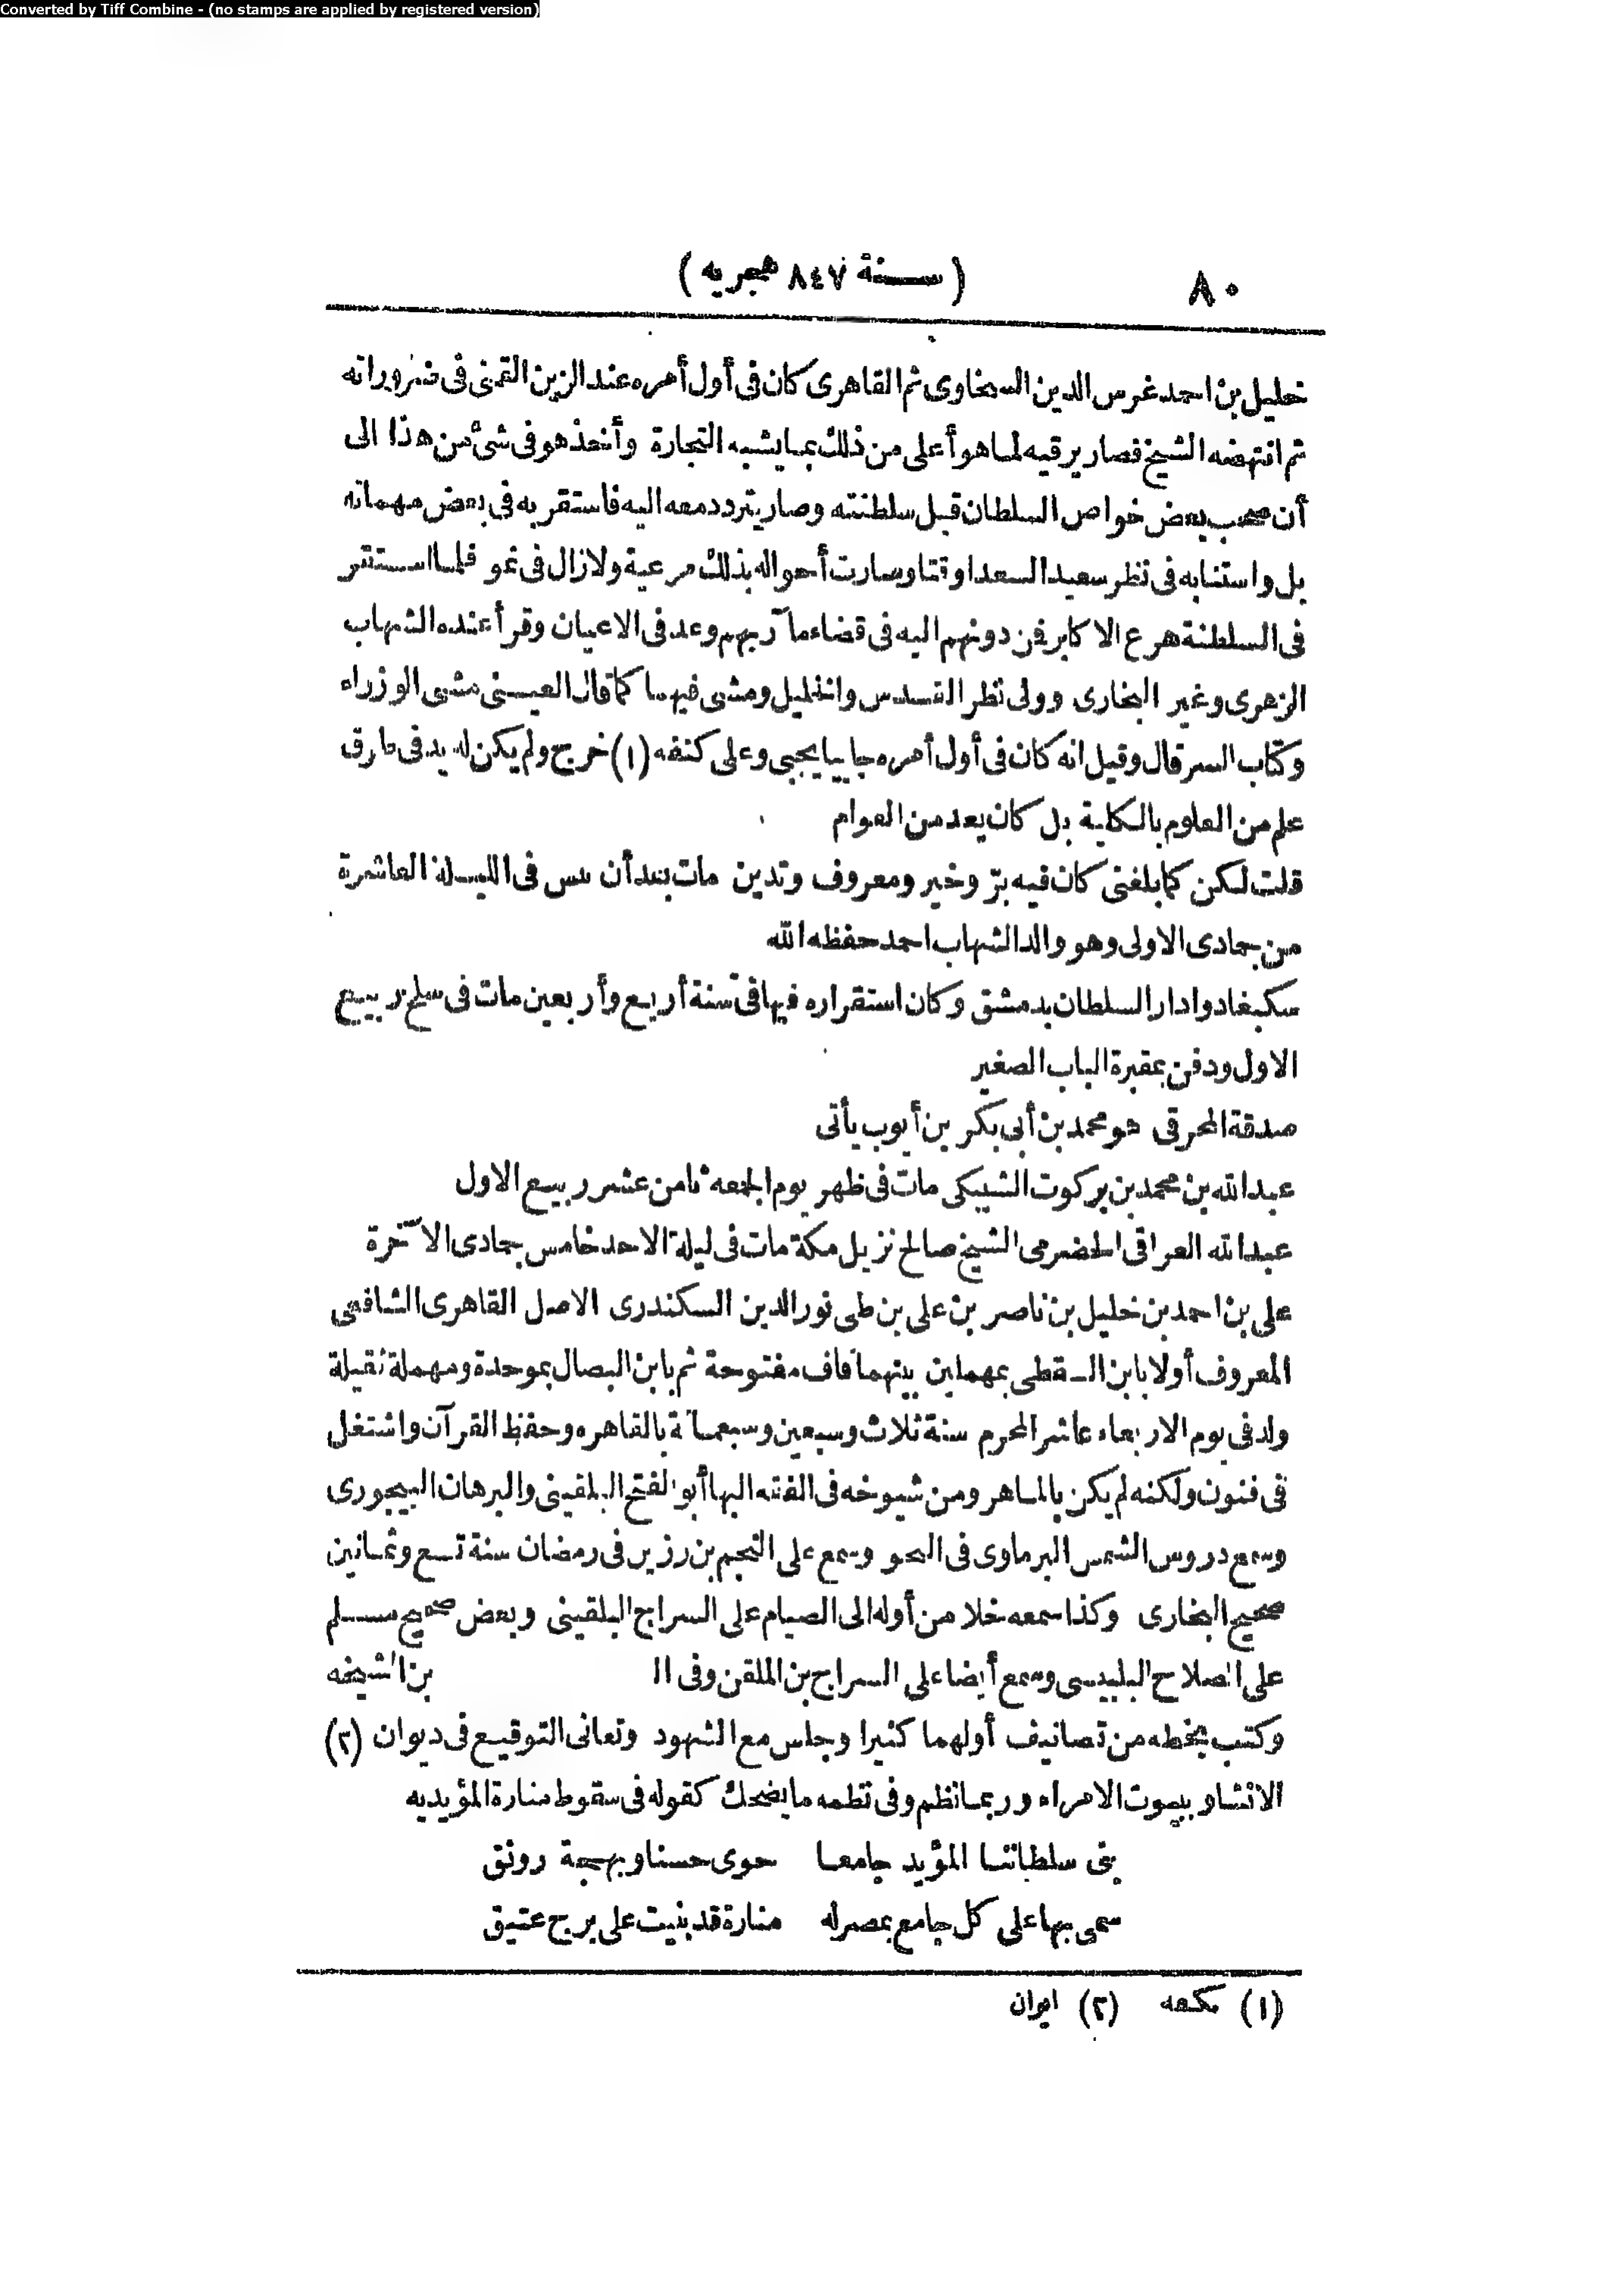 Converted by Tiff Combine - (no stamps are applied by registered version)
٨٠
(سنة ٨٤٧ هجريه)
خليل بن احمد غرس الدين السخاوى ثم القاهرى كان فى أول أمره عند الزين القمنى فى ضروراته
ثم انتهضه الشيخ فصار يرقيه لما هو أعلى من ذلك بما يشبه التجارة وأخذ هو فى شئ من هذا الى
أن صحب بعض خواص السلطان قبل سلطنته وصار يتردد معه اليه فاستقر به فى بعض مهماته
بل واستنابه فى نظر سعيد السعدا وقتا وصارت أحواله بذلك مرعية ولازال فى نمو فلما استقر
فى السلطنة هرع الاكابر فمن دونهم اليه فى قضاء مآربهم وعد فى الاعيان وقرأ عنده الشهاب
الزهرى وغير البخارى وولى نظر القدس والخليل ومشى فيهما كما قال العينى مشى الوزراء
وكتاب السر قال وقيل انه كان فى أول أمره جابيا يجبى وعلى كتفه (١) خرج ولم يكن له يد فى طرق
علم من العلوم بالكلية بل كان يعد من العوام
قلت لكن كما بلغنى كان فيه برّ وخير ومعروف وتدين مات بعد أن فى الليلة العاشرة
من جمادى الاولى وهو والد الشهاب احمد حفظه الله
سكبغا دوادار السلطان بدمشق وكان استقراره فيها فى سنة أربع وأربعين مات فى سلخ ربيع
الاول ودفن بمقبرة الباب الصغير
صدقة المحرقى هو محمد بن أبى بكر بن أيوب يأتى
عبد الله بن محمد بن بركوت الشبيكى مات فى ظهر يوم الجمعه ثامن عشر ربيع الاول
عبد الله العراقى الحضرمى الشيخ صالح نزيل مكة مات فى ليلة الاحد خامس جمادى الآخرة
على بن احمد بن خليل بن ناصر بن على بن طى نور الدين السكندرى الاصل القاهرى الشافعى
المعروف أولا بابن السقطى بمهملتين بينهما قاف مفتوحة ثم بابن البصال بموحدة ومهملة ثقيلة
ولد فى يوم الاربعاء عاشر المحرم سنة ثلاث وسبعين وسبعمائة بالقاهره وحفظ القرآن واشتغل
فى فنون ولكنه لم يكن بالماهر ومن شيوخه فى الفقه البها أبو الفتح البلقينى والبرهان البيجورى
وسمع دروس الشمس البرماوى فى النحو وسمع على النجم بن رزين فى رمضان سنة تسع وثمانين
صحيح البخارى وكذا سمعه خلا من أوله الى الصيام على السراج البلقينى وبعض صحيح مسلم
على الصلاح البلبيسى وسمع أيضا على السراج بن الملقن وفى ال بن الشيخه
وكتب بخطه من تصانيف أولهما كثيرا وجلس مع الشهود وتعانى التوقيع فى ديوان (٢)
الانشا وبيوت الامراء وربما نظم وفى نظمه ما يضحك كقوله فى سقوط منارة المؤيديه
بنى سلطاننا المؤيد جامعا حوى حسنا وبهجة رونق
سمى بها على كل جامع بمصر له منارة قد بنيت على برج عتيق
(١) مكعه (٢) ايران